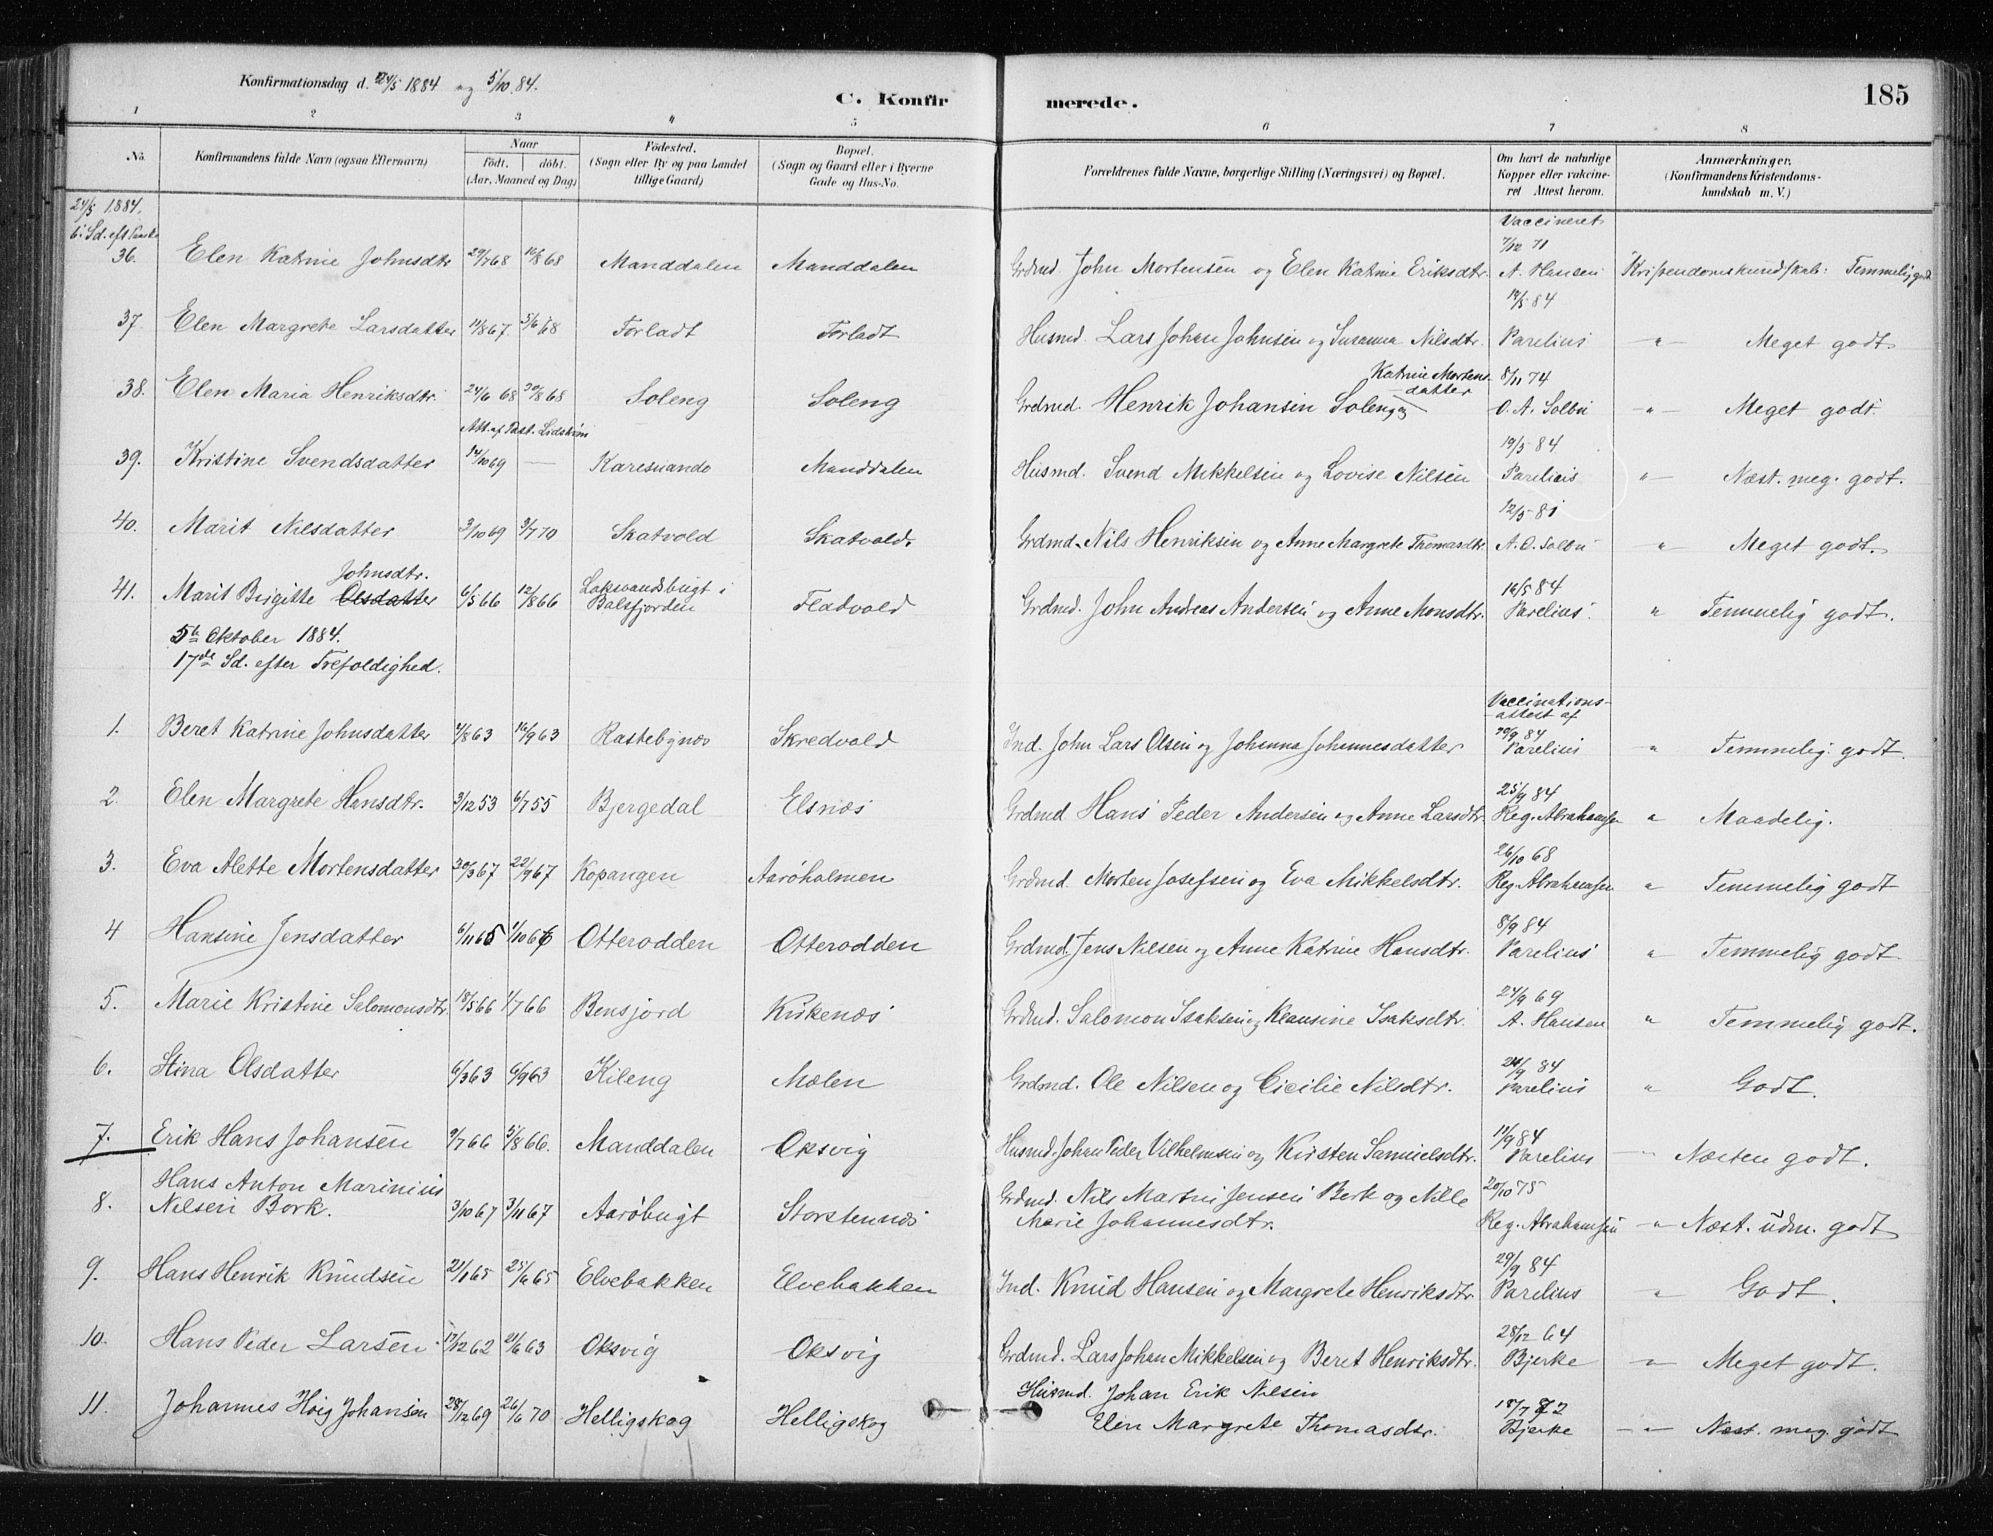 Konfirmationsdag d. 24/5 1884 og 5/10 84.
C. Konfirmerede.
185
1 2 3 4 5 6 7 8
No.
Konfirmandens fulde Navn (ogsaa Efternavn)
Naar
Födt. döbt.
(Aar, Maaned og Dag)
Födested.
(Sogn eller By og paa Landet
tillige Gaard)
Bopæl.
(Sogn og Gaard eller i Byerne
Gade og Hus-No.
Forældrenes fulde Navne, borgerlige Stilling (Næringsvei) og Bopæl.
Om havt de naturlige
Kopper eller vakcine-
ret Attest herom.
Anmærkninger.
(Konfirmandens Kristendoms-
kundskab m. V.)
24/5 1884.
6. Sd. eft Paaske
Vaccineret
7/12 71
36. Elen Katrine Johnsdtr 29/7 68 16/8 68 Manddalen Manddalen Grdmd. John Mortensen og Elen Katrine Eriksdtr. A. Hansen Kristendomskundskab: Temmelig godt
19/5 84
37. Elen Margrete Larsdatter 11/8 67. 5/6 68 Forladt Forladt Husmd. Lars Johan Johnsen og Susanna Nilsdtr. Parelius " Meget godt
Katrine Mortens- 8/11 74
datter
38. Elen Maria Henriksdtr. 24/6 68 30/8 68 Soleng Soleng Grdmd. Henrik Johansen Soleng og O. A. Solbu " Meget godt.
Att. af Past. Lidström
19/5 84
39. Kristine Svendsdatter 14/10 69 — Karesuando Manddalen Husmd. Svend Mikkelsen og Lovise Nilsen Parelius " Næst. meg. godt.
12/5 81
40. Marit Nilsdatter 3/10 69 3/7 70 Skatvold Skatvold. Grdmd. Nils Henriksen og Anne Margrete Thomasdtr. A. O. Solbu " Meget godt.
Johnsdtr.
41. Marit Birgitte Olsdatter 6/5 66 12/8 66 Laksvandsbugt i
Balsfjorden Fladvold Grdmd. John Andreas Andersen og Anne Monsdtr. 19/5 84
Parelius. " Temmelig godt.
5te Oktober 1884.
17de Sd. efter Trefoldighed.
Vaccinations-
attest af
1. Beret Katrine Johnsdatter 2/8 63 16/9 63 Rastebynæs Skredvold Ind. John Lars Olsen og Johanna Johannesdatter 30/9 84
Parelius " Temmelig godt.
2. Elen Margrete Hansdtr. 3/12 53 6/7 55 Bjergedal Elsnæs Grdmd Hans Peder Andersen og Anne Larsdtr. 25/9 84
Reg. Abrahamsen " Maadelig.
3. Eva Alette Mortensdatter 30/3 67 22/9 67 Kopangen Aarøholmen Grdmd. Morten Josefsen og Eva Mikkelsdtr. 26/10 68
Reg. Abrahamsen " Temmelig godt
4 Hansine Jensdatter 6/11 65 1/10 66 Otterodden Otterodden Grdmd. Jens Nilsen og Anne Katrine Hansdtr. 8/9 84
Parelius " Temmelig godt.
5. Marie Kristine Salomonsdtr. 18/5 66 1/7 66 Bensjord Kirkenæs Grdmd. Salomon Isaksen og Klausine Isaksdtr. 24/9 69
A. Hansen " Temmelig godt.
6. Stina Olsdatter 6/3 63 6/9 63 Kileng Mælen Grdmd. Ole Nilsen og Cicilie Nilsdtr. 24/9 84
Parelius " Godt.
7. Erik Hans Johansen 9/7 66 5/8 66. Manddalen Oksvig Husmd. Johan Peder Vilhelmsen og Kirsten Samuelsdtr. 11/9 84
Parelius " Næsten godt.
8. Hans Anton Marinius
Nilsen Bork. 3/10 67 3/11 67 Aarøbugt Storstennæs Grdmd. Nils Martin Jensen Berk og Nille
Marie Johannesdtr. 20/10 75
Reg. Abrahamsen " Næst. udm. godt
9. Hans Henrik Knudsen 21/1 65 25/6 65 Elvebakken Elvebakken Ind. Knud Hansen og Margrete Henriksdtr. 29/9 84
Parelius " Godt.
10. Hans Peder Larsen 17/12 62 21/6 63 Oksvig Oksvig Grdmd. Lars Johan Mikkelsen og Beret Henriksdtr. 28/12 64
Bjerke " Meget godt.
11. Johannes Høig Johansen 28/12 69 26/6 70 Helligskog Helligskog Husmd. Johan Erik Nilsen
Elen Margrete Thomasdtr. 18/7 72
Bjerke " Næst. meg. godt